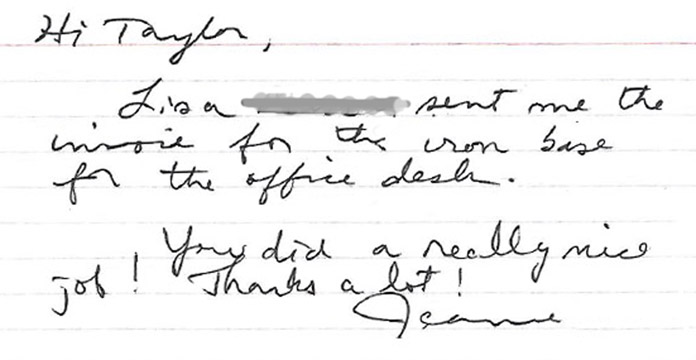 Hi Taylor,
Lisa sent me the
invoice for the iron base
for the office desk.
You did a really nice
job! Thanks a lot!
Jeanne